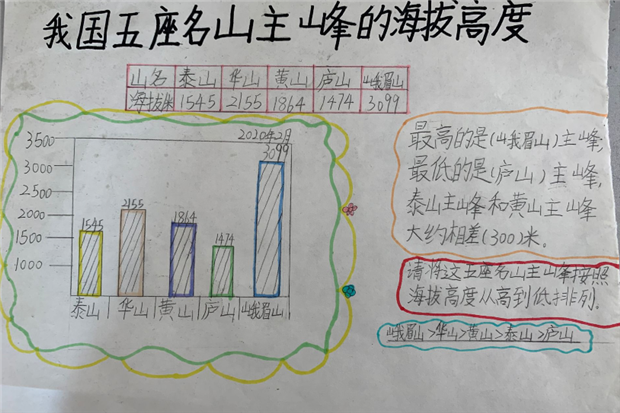 我国五座名山主峰的海拔高度
山名 泰山 华山 黄山 庐山 峨眉山
海拔/米 1545 2155 1864 1474 3099
2020年2月
3500
3000
2500
2000
1500
1000
1545
2155
1864
1474
3099
泰山 华山 黄山 庐山 峨眉山
最高的是(峨眉山)主峰,
最低的是(庐山)主峰,
泰山主峰和黄山主峰
大约相差(300)米。
请将这五座名山主峰按照
海拔高度从高到低排列.
峨眉山>华山>黄山>泰山>庐山